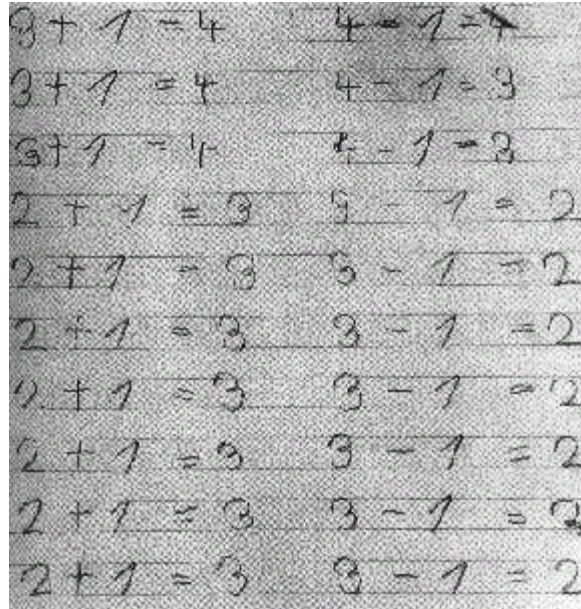 3 + 1 = 4 4 - 1 =
3 + 1 = 4 4 - 1 = 3
3 + 1 = 4 4 - 1 = 3
2 + 1 = 3 3 - 1 = 2
2 + 1 = 3 3 - 1 = 2
2 + 1 = 3 3 - 1 = 2
2 + 1 = 3 3 - 1 = 2
2 + 1 = 3 3 - 1 = 2
2 + 1 = 3 3 - 1 = 2
2 + 1 = 3 3 - 1 = 2